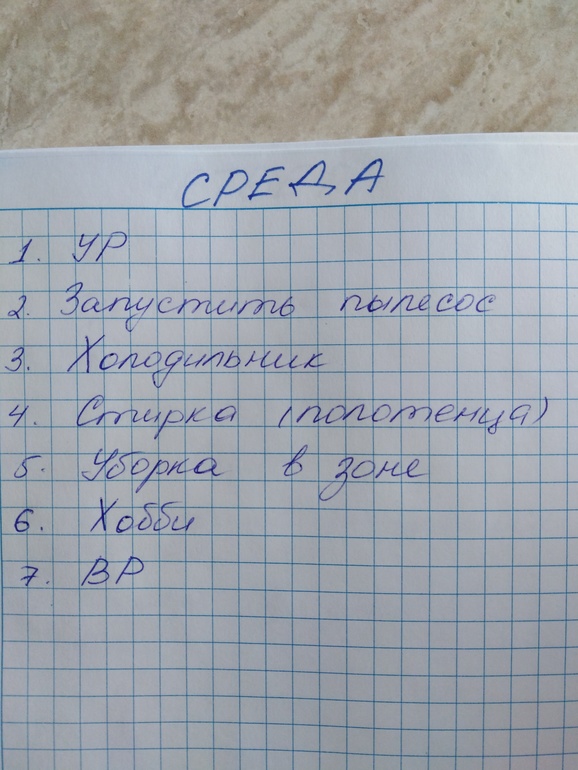 СРЕДА
1. УР
2. Запустить пылесос
3. Холодильник
4. Стирка (полотенца)
5. Уборка в зоне
6. Хобби
7. ВР